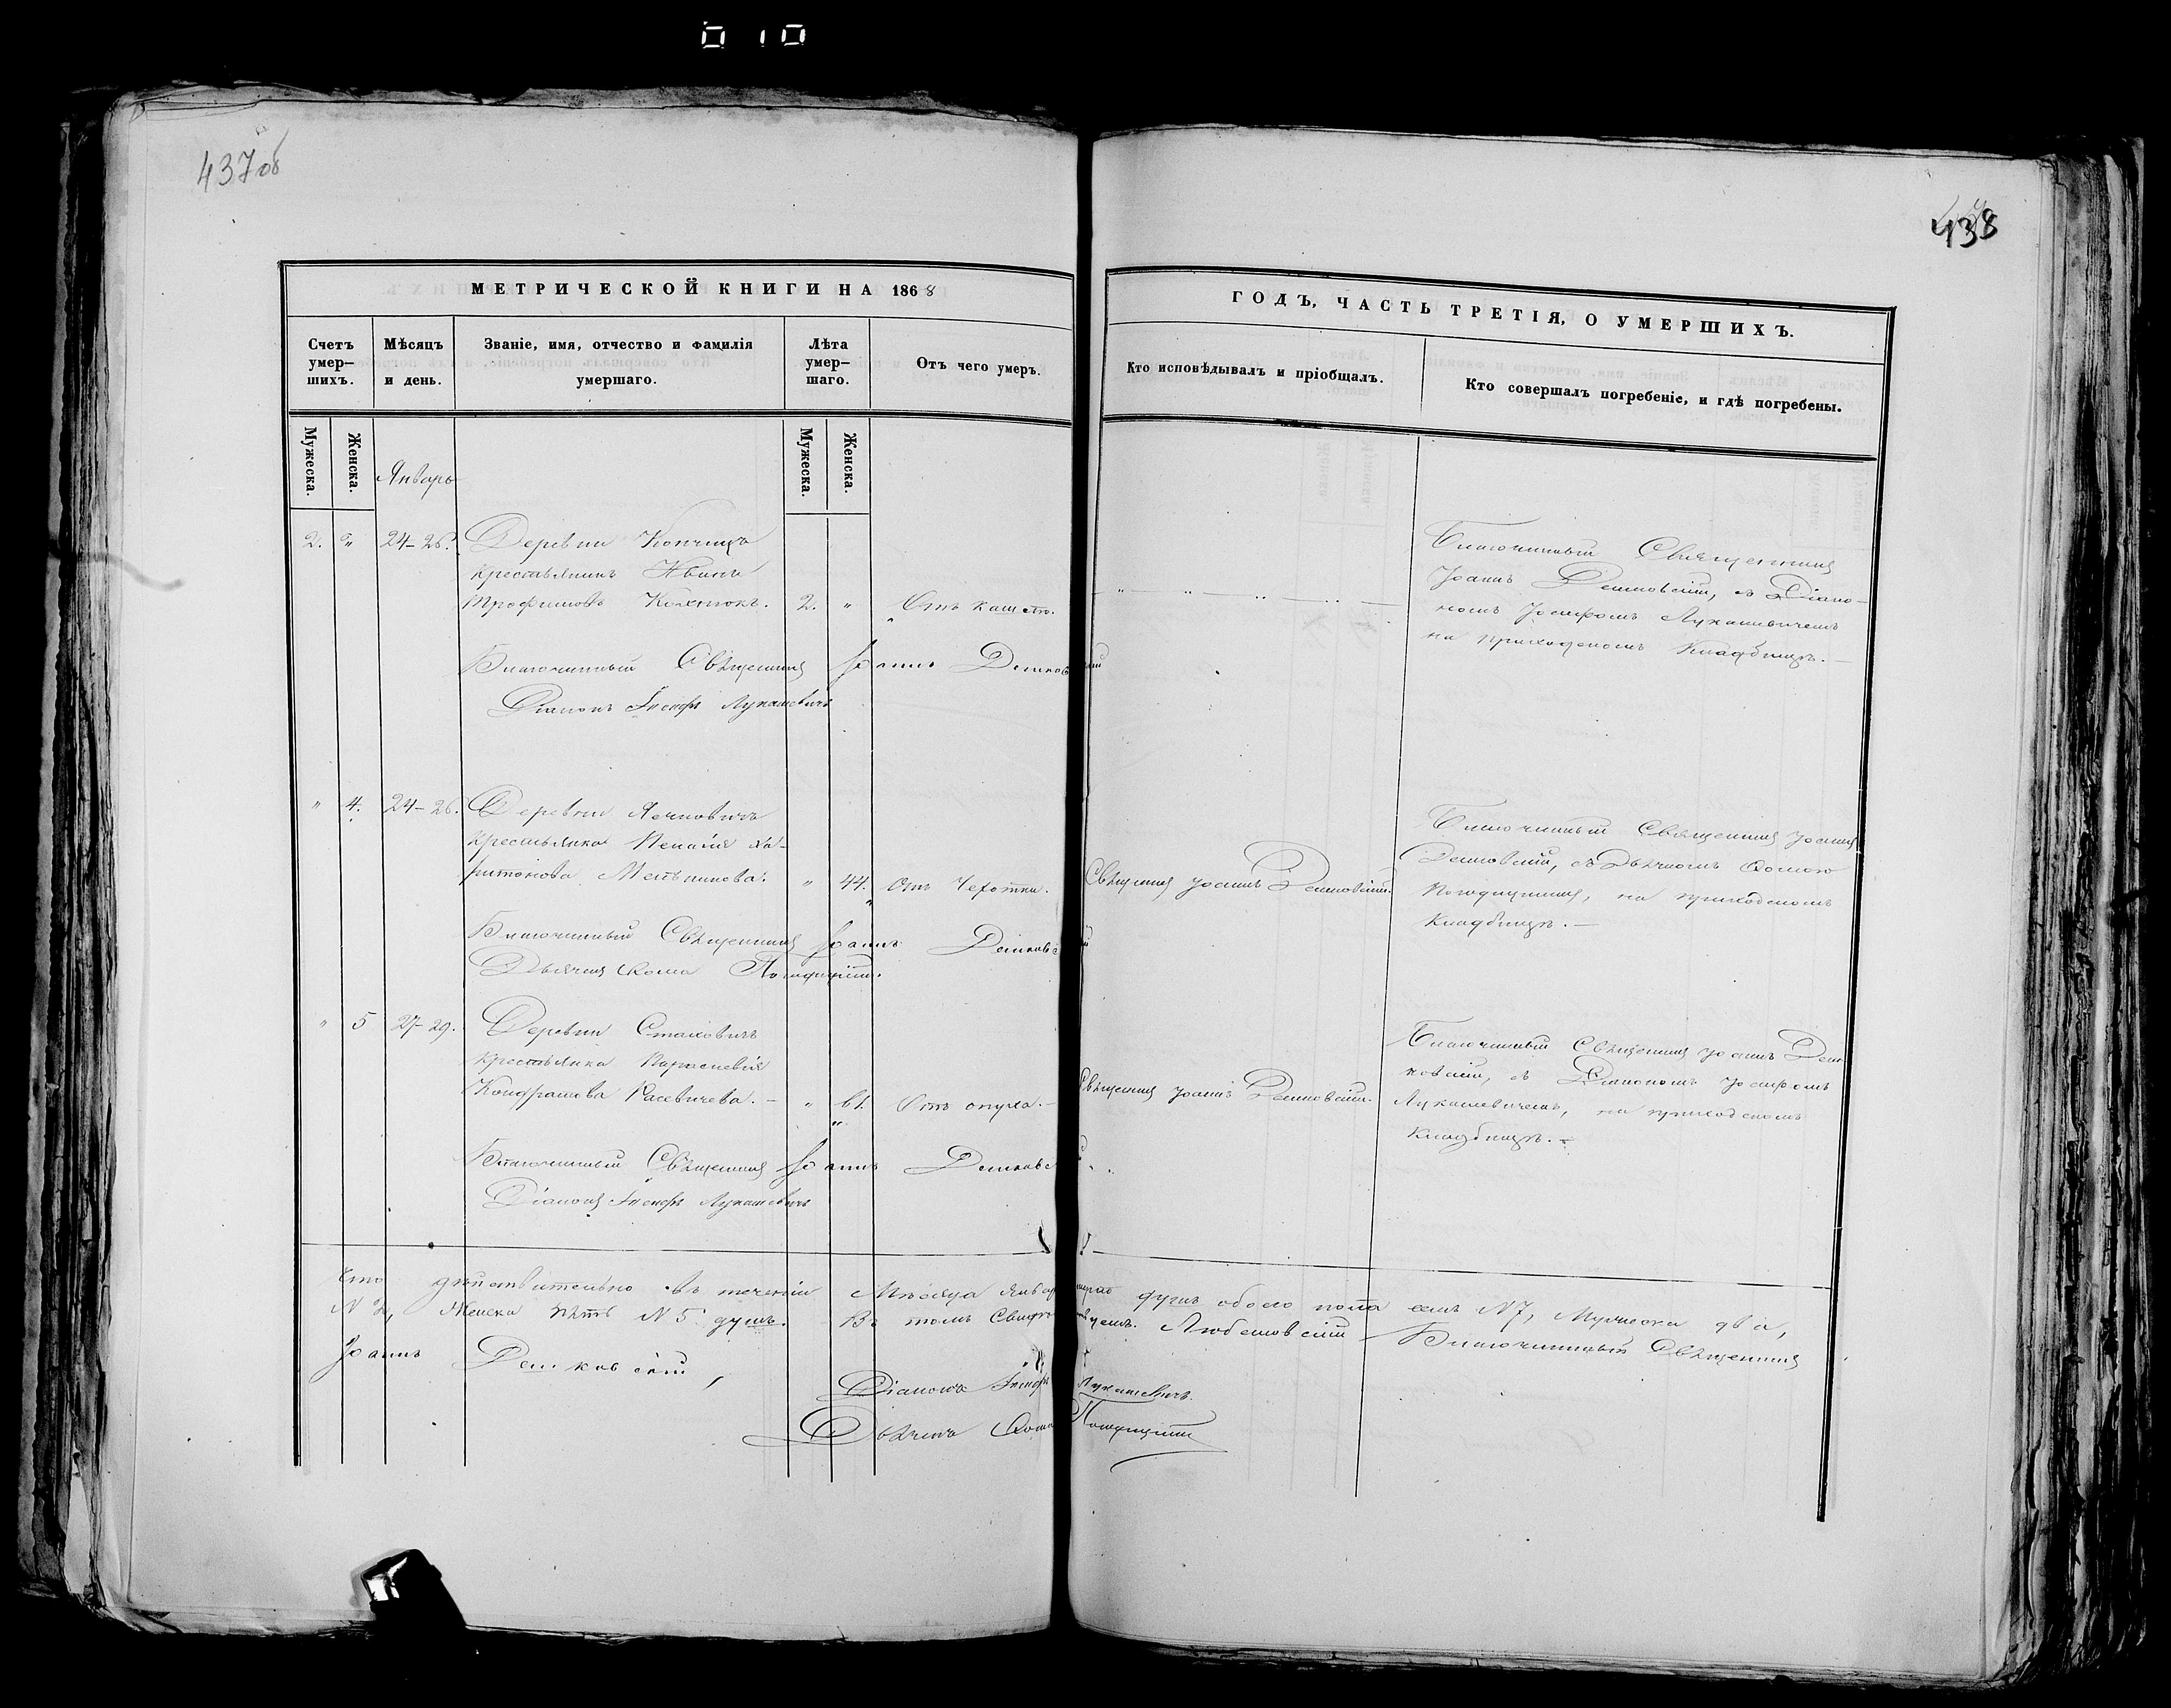 010
437об
438
МЕТРИЧЕСКОЙ КНИГИ НА 1868
ГОДЪ, ЧАСТЬ ТРЕТІЯ, О УМЕРШИХЪ.
Счетъ умер–шихъ.
Мѣсяцъ и день.
Званіе, имя, отчество и фамилія умершаго.
Лѣта умер–шаго.
Отъ чего умеръ.
Кто исповѣдывалъ и пріобщалъ.
Кто совершалъ погребеніе, и гдѣ погребены.
Мужеска.
Женска.
Январь
Мужеска.
Женска.
2. " 24–26. Деревни
крестьянинъ Иванъ
Трофимовъ 2. " Отъ кашлю.
Благочинный Священникъ
Іоаннъ Демковскій, съ Діако–
номъ Іосифомъ Лукашевичемъ
на приходскомъ Кладбищѣ.–
Благочинный Священникъ Іоаннъ Демковскій
Діаконъ Іосифъ Лукашевичъ
" 4. 24–26. Деревни
крестьянка Ха–
ритонова " 44. Отъ Чехотки.
Священникъ Іоаннъ Демковскій.
Благочинный Священникъ Іоаннъ
Демковскій, съ Дьячкомъ Ѳомою
на приходскомъ
Кладбищѣ.–
Благочинный Священникъ Іоаннъ Демковскій
Дьячекъ Ѳома
" 5 27–29. Деревни Стаховичъ
крестьянка Параскевія
Кондратова Расевичева.– " 61. Отъ опуха.–
Священникъ Іоаннъ Демковскій.
Благочинный Священникъ Іоаннъ Дем
ковскій, съ Діакономъ Іосифомъ
Лукашевичемъ, на приходскомъ
Кладбищѣ.–
Благочинный Священникъ Іоаннъ Демковскій
Діаконъ Іосифъ Лукашевичъ
Что дѣйствительно въ теченіи Мѣсяца Января душъ обоего пола N 7, Мужеска два,
N 2, Женска пять N 5 душъ. Въ томъ Благочинный Священникъ
Іоаннъ Демковскій,
Діаконъ Іосифъ Лукашевичъ.
Дьячекъ Ѳома